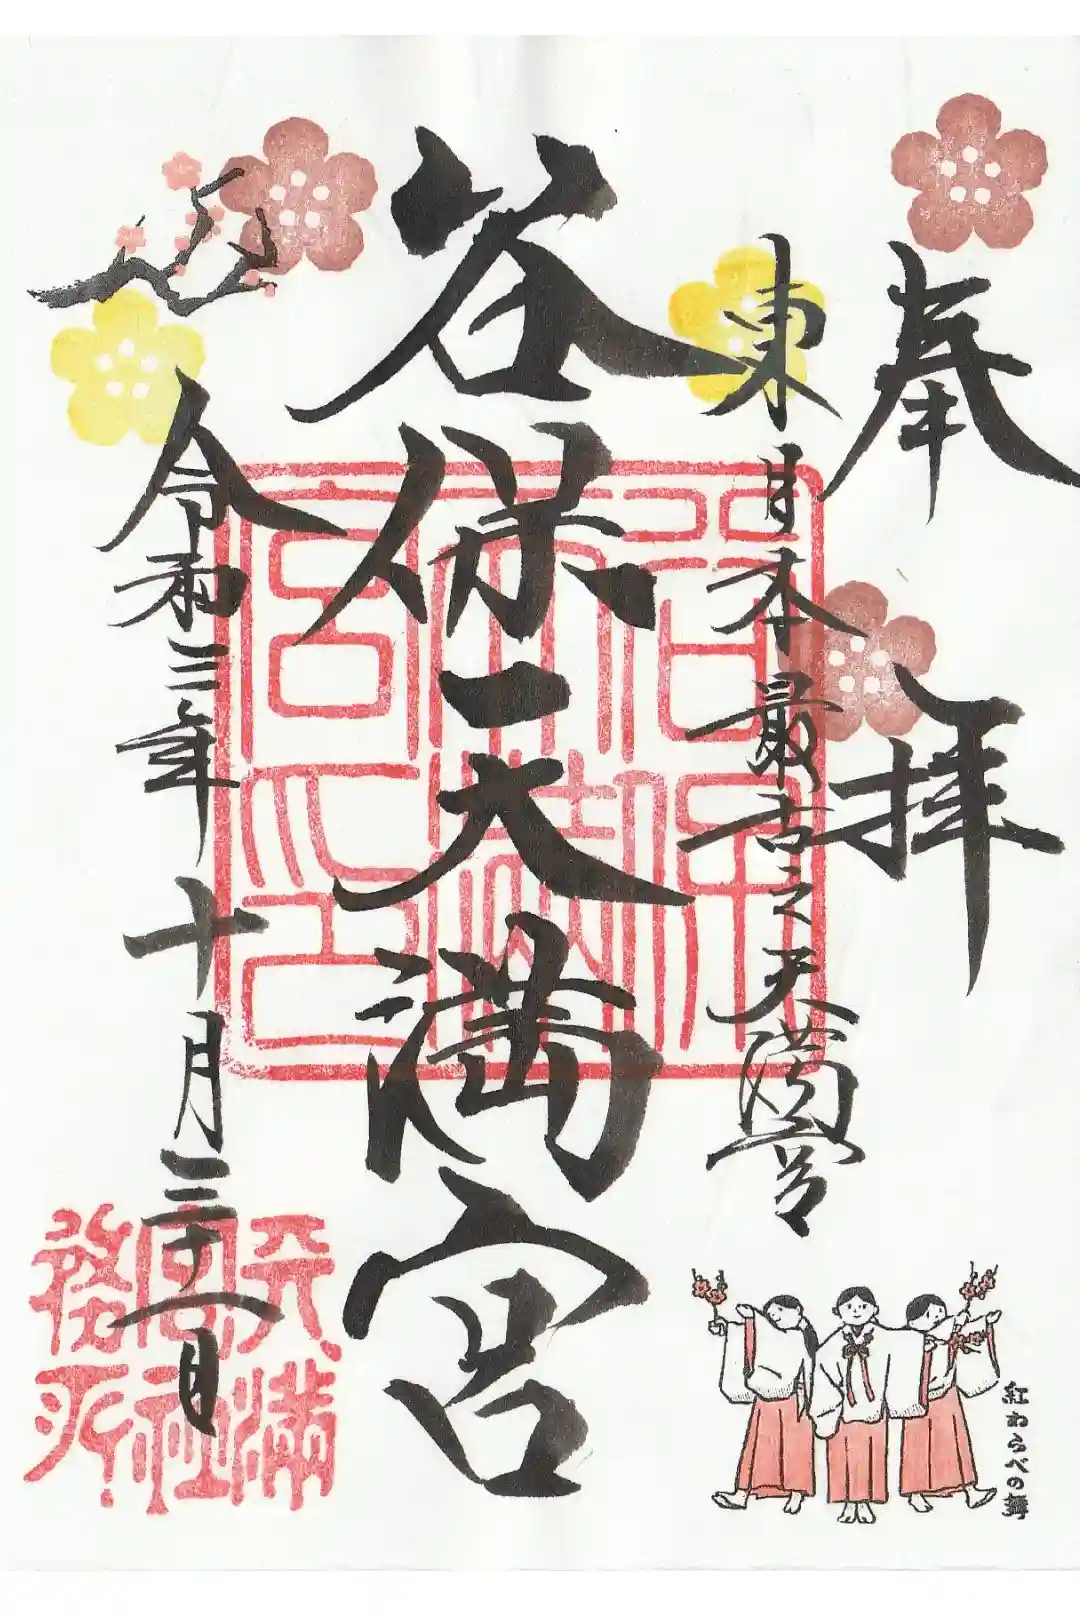 奉拝
東日本最古之天満宮
谷保天満宮
令和三年十月三十一日
谷保
天満
宮之印
天満
宮社
務所
紅わらべの舞